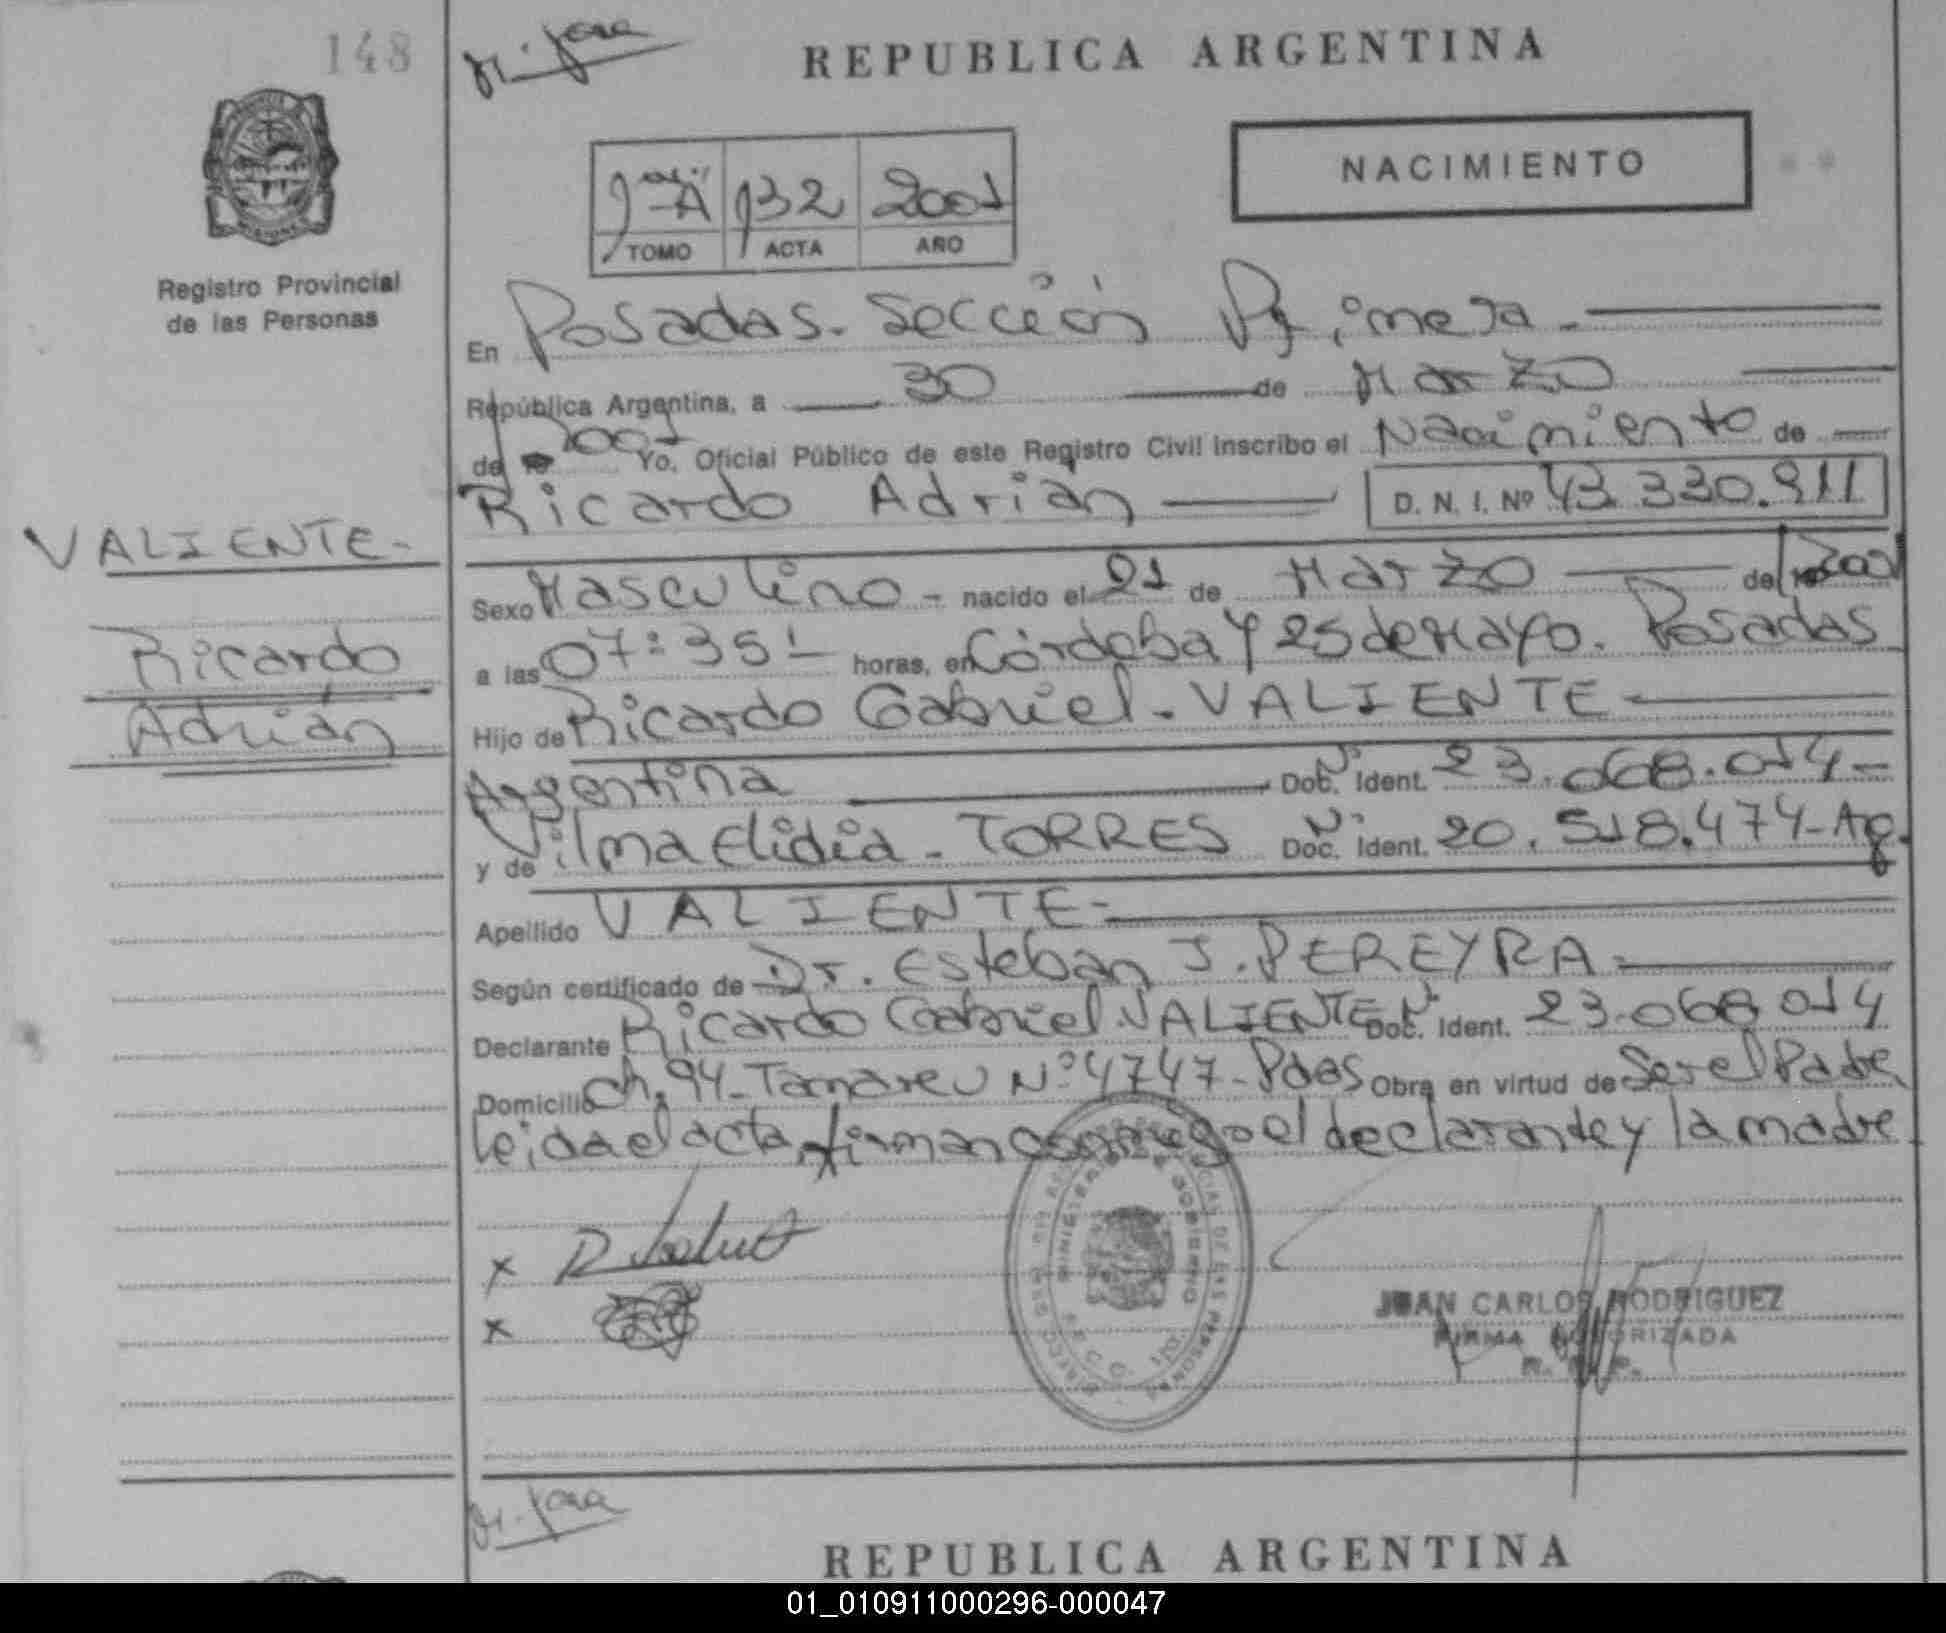 148
REPUBLICA ARGENTINA
NACIMIENTO
132 2001
TOMO ACTA AÑO
Registro Provincial
de las Personas
En Posadas. Sección Primera.
República Argentina, a 30 de Marzo
de 2001 Yo, Oficial Público de este Registro Civil inscribo el Nacimiento de
Ricardo Adrián D. N. I. Nº 43.330.911
VALIENTE-
Ricardo
Adrián
Sexo Masculino - nacido el 21 de Marzo de 2001
a las 07:35'- horas, en Córdoba y 25 de Mayo. Posadas
Hijo de Ricardo Gabriel - VALIENTE
Argentina Doc. Nº Ident. 23.068.014-
y de Vilma Elidia - TORRES Doc. Nº Ident. 20.518.474- Ag.
Apellido VALIENTE-
Según certificado de Dr. Esteban J. PEREYRA
Declarante Ricardo Gabriel VALIENTE Doc. Nº Ident. 23.068.014
Domicilio Ch. 94- Tamareu Nº 4747- Pdas Obra en virtud de Ser el Padre
leida el acta, firman conmigo el declarante y la madre
x
x
JUAN CARLOS RODRIGUEZ
FIRMA AUTORIZADA
REPUBLICA ARGENTINA
01_010911000296-000047